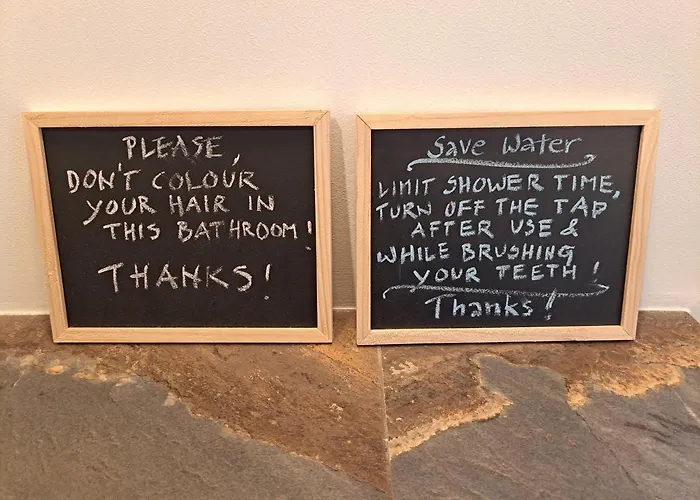 PLEASE,
DON'T COLOUR
YOUR HAIR IN
THIS BATHROOM!
THANKS!
Save Water
LIMIT SHOWER TIME,
TURN OFF THE TAP
AFTER USE &
WHILE BRUSHING
YOUR TEETH!
Thanks!